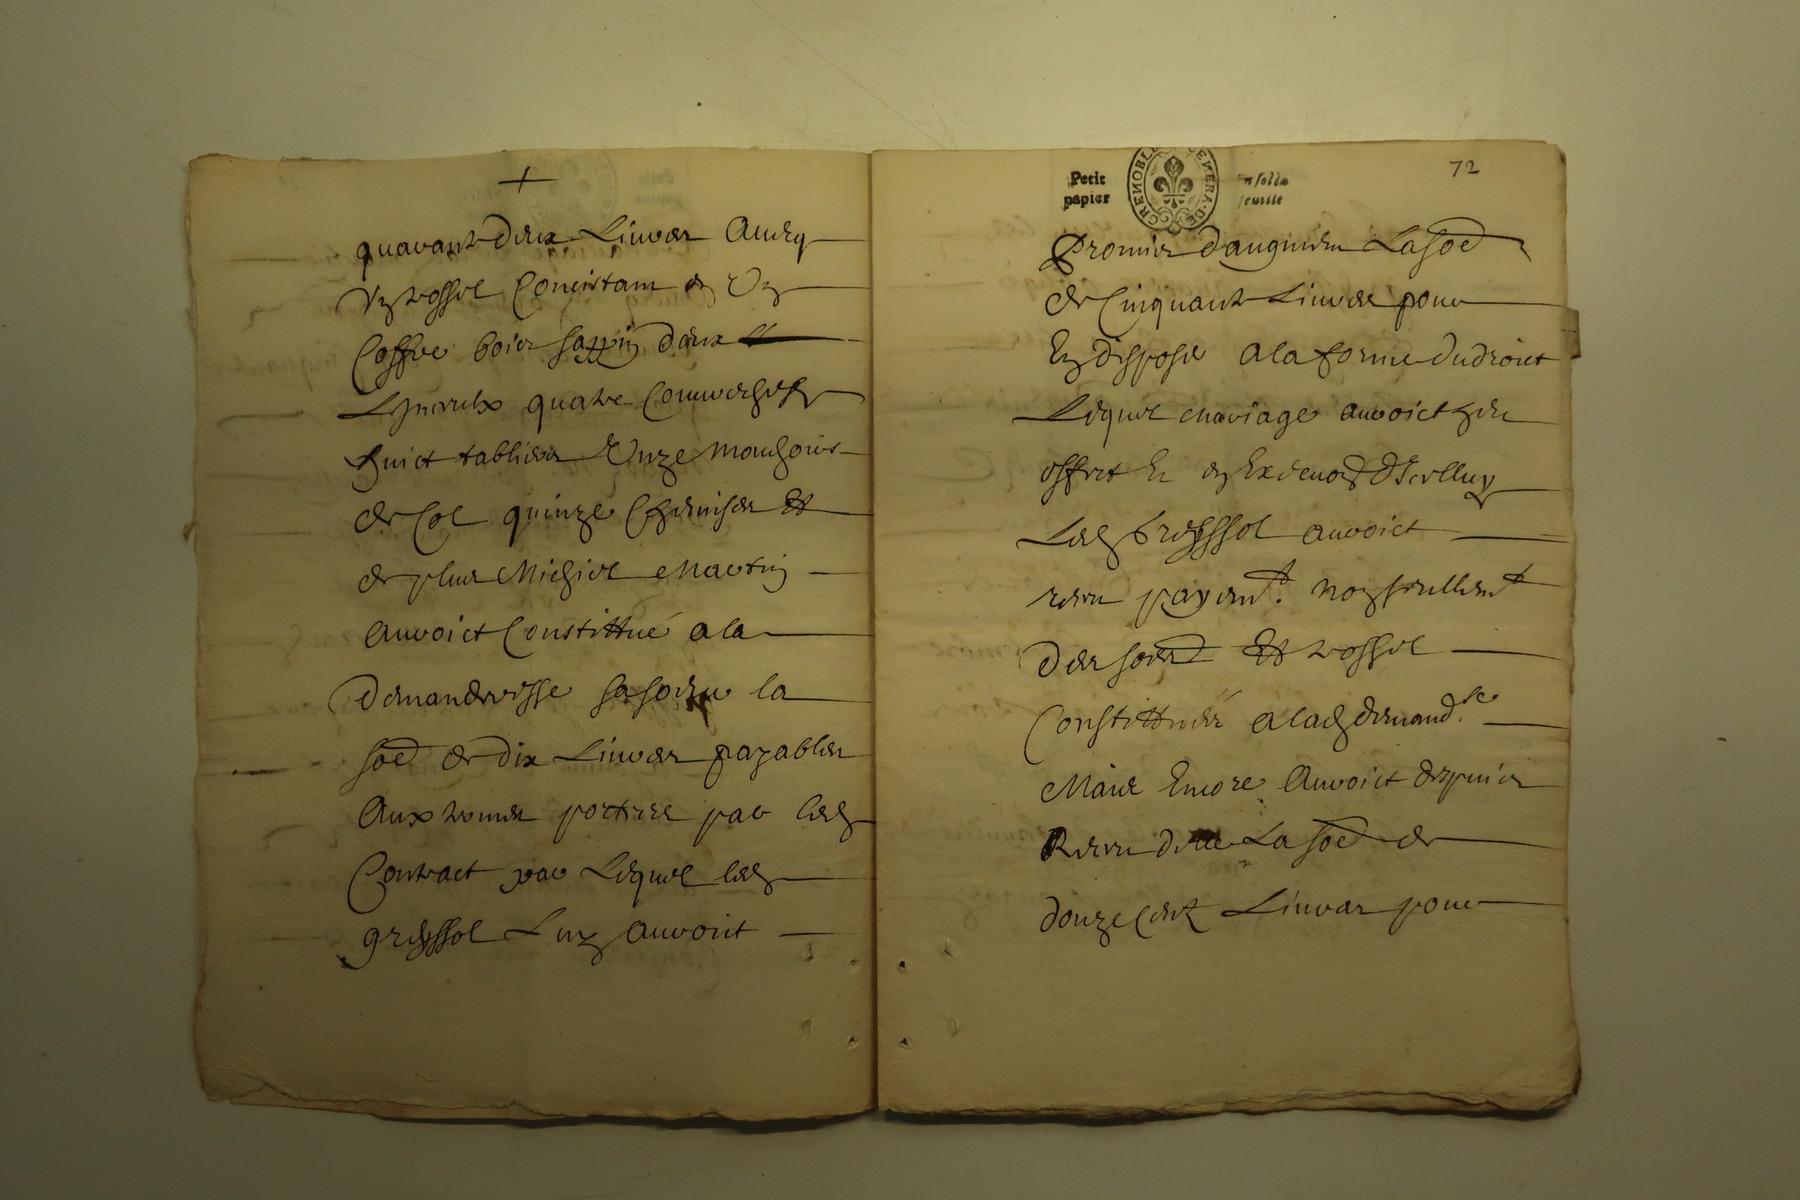 +
quarante deux Livres Avecq
Un trossel Concistant en Un
Coffre bois sappin deux
Linceulx quatre Couvrechefz
huict tabliers Unze mouchoirs
de Col quinze Chemises Et
de plus Michiel Martin
Auroict Constittué a la
demanderesse sa soeur la
soe de dix Livres payables
Aux termes portees par led
Contract par Lequel led
greyssol Luy auroit
Petit
papier
GRENOBLE GENERA. DE
un solla
feuille
72
Promis daugment La soe
de Cinquante Livres pour
En disposer a la forme du droict
Lequel mariage auroict heu
effect Et en Exeqution d'Icelluy
Led Greyssol auroict
receu payemt. non seullemt
des soes Et trossel
Constittuée a lad demandse.
Mais Encore Auroict despuis
Receu delle La soe de
douze Centz Livres pour